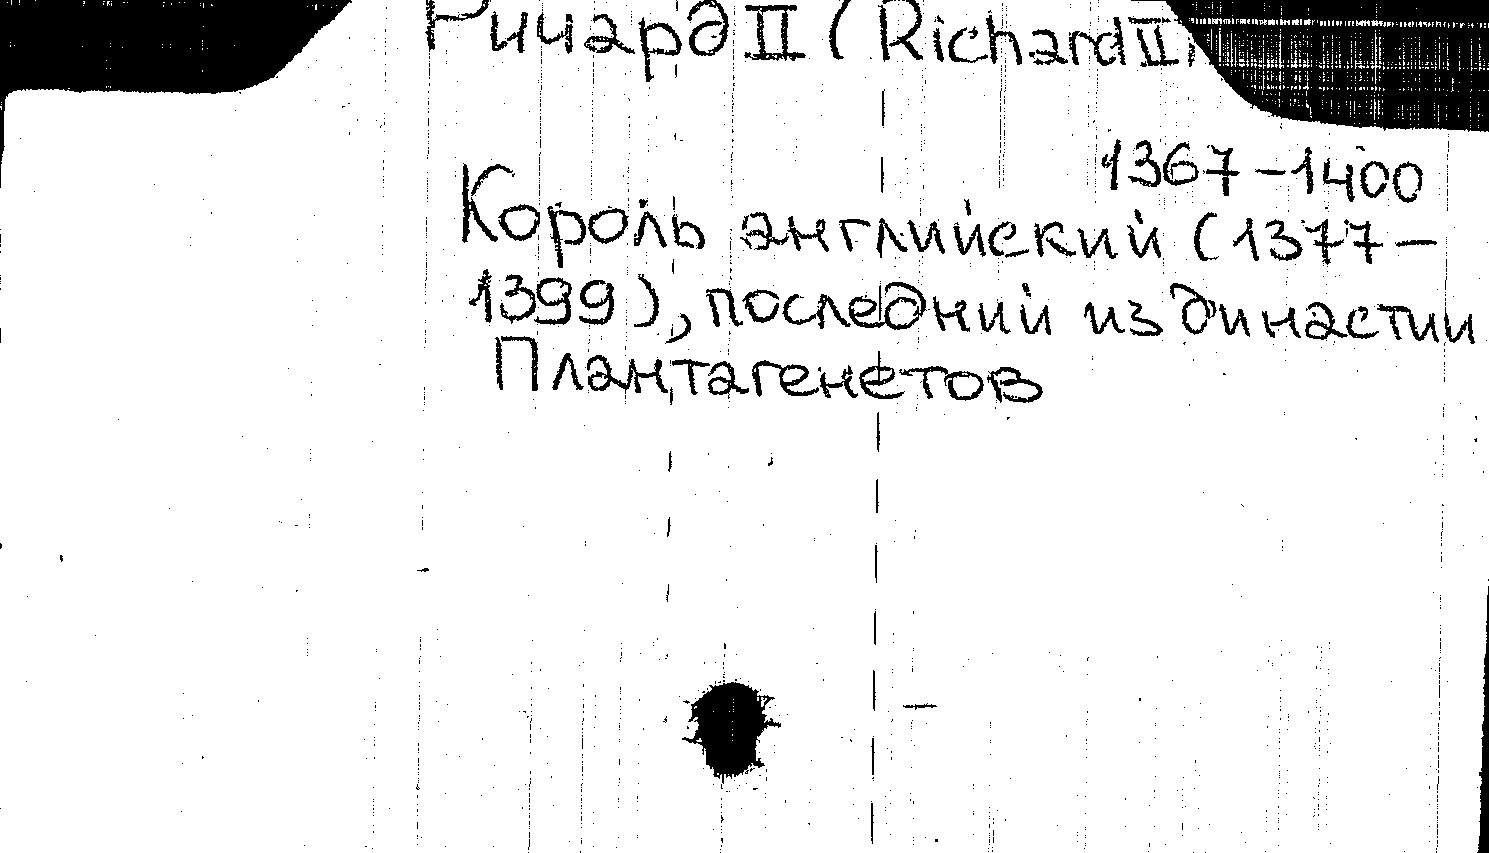 Ричард II (Richard II)
1367-1400
Король английский (1377-
1399), последний из династии
Плантагенетов